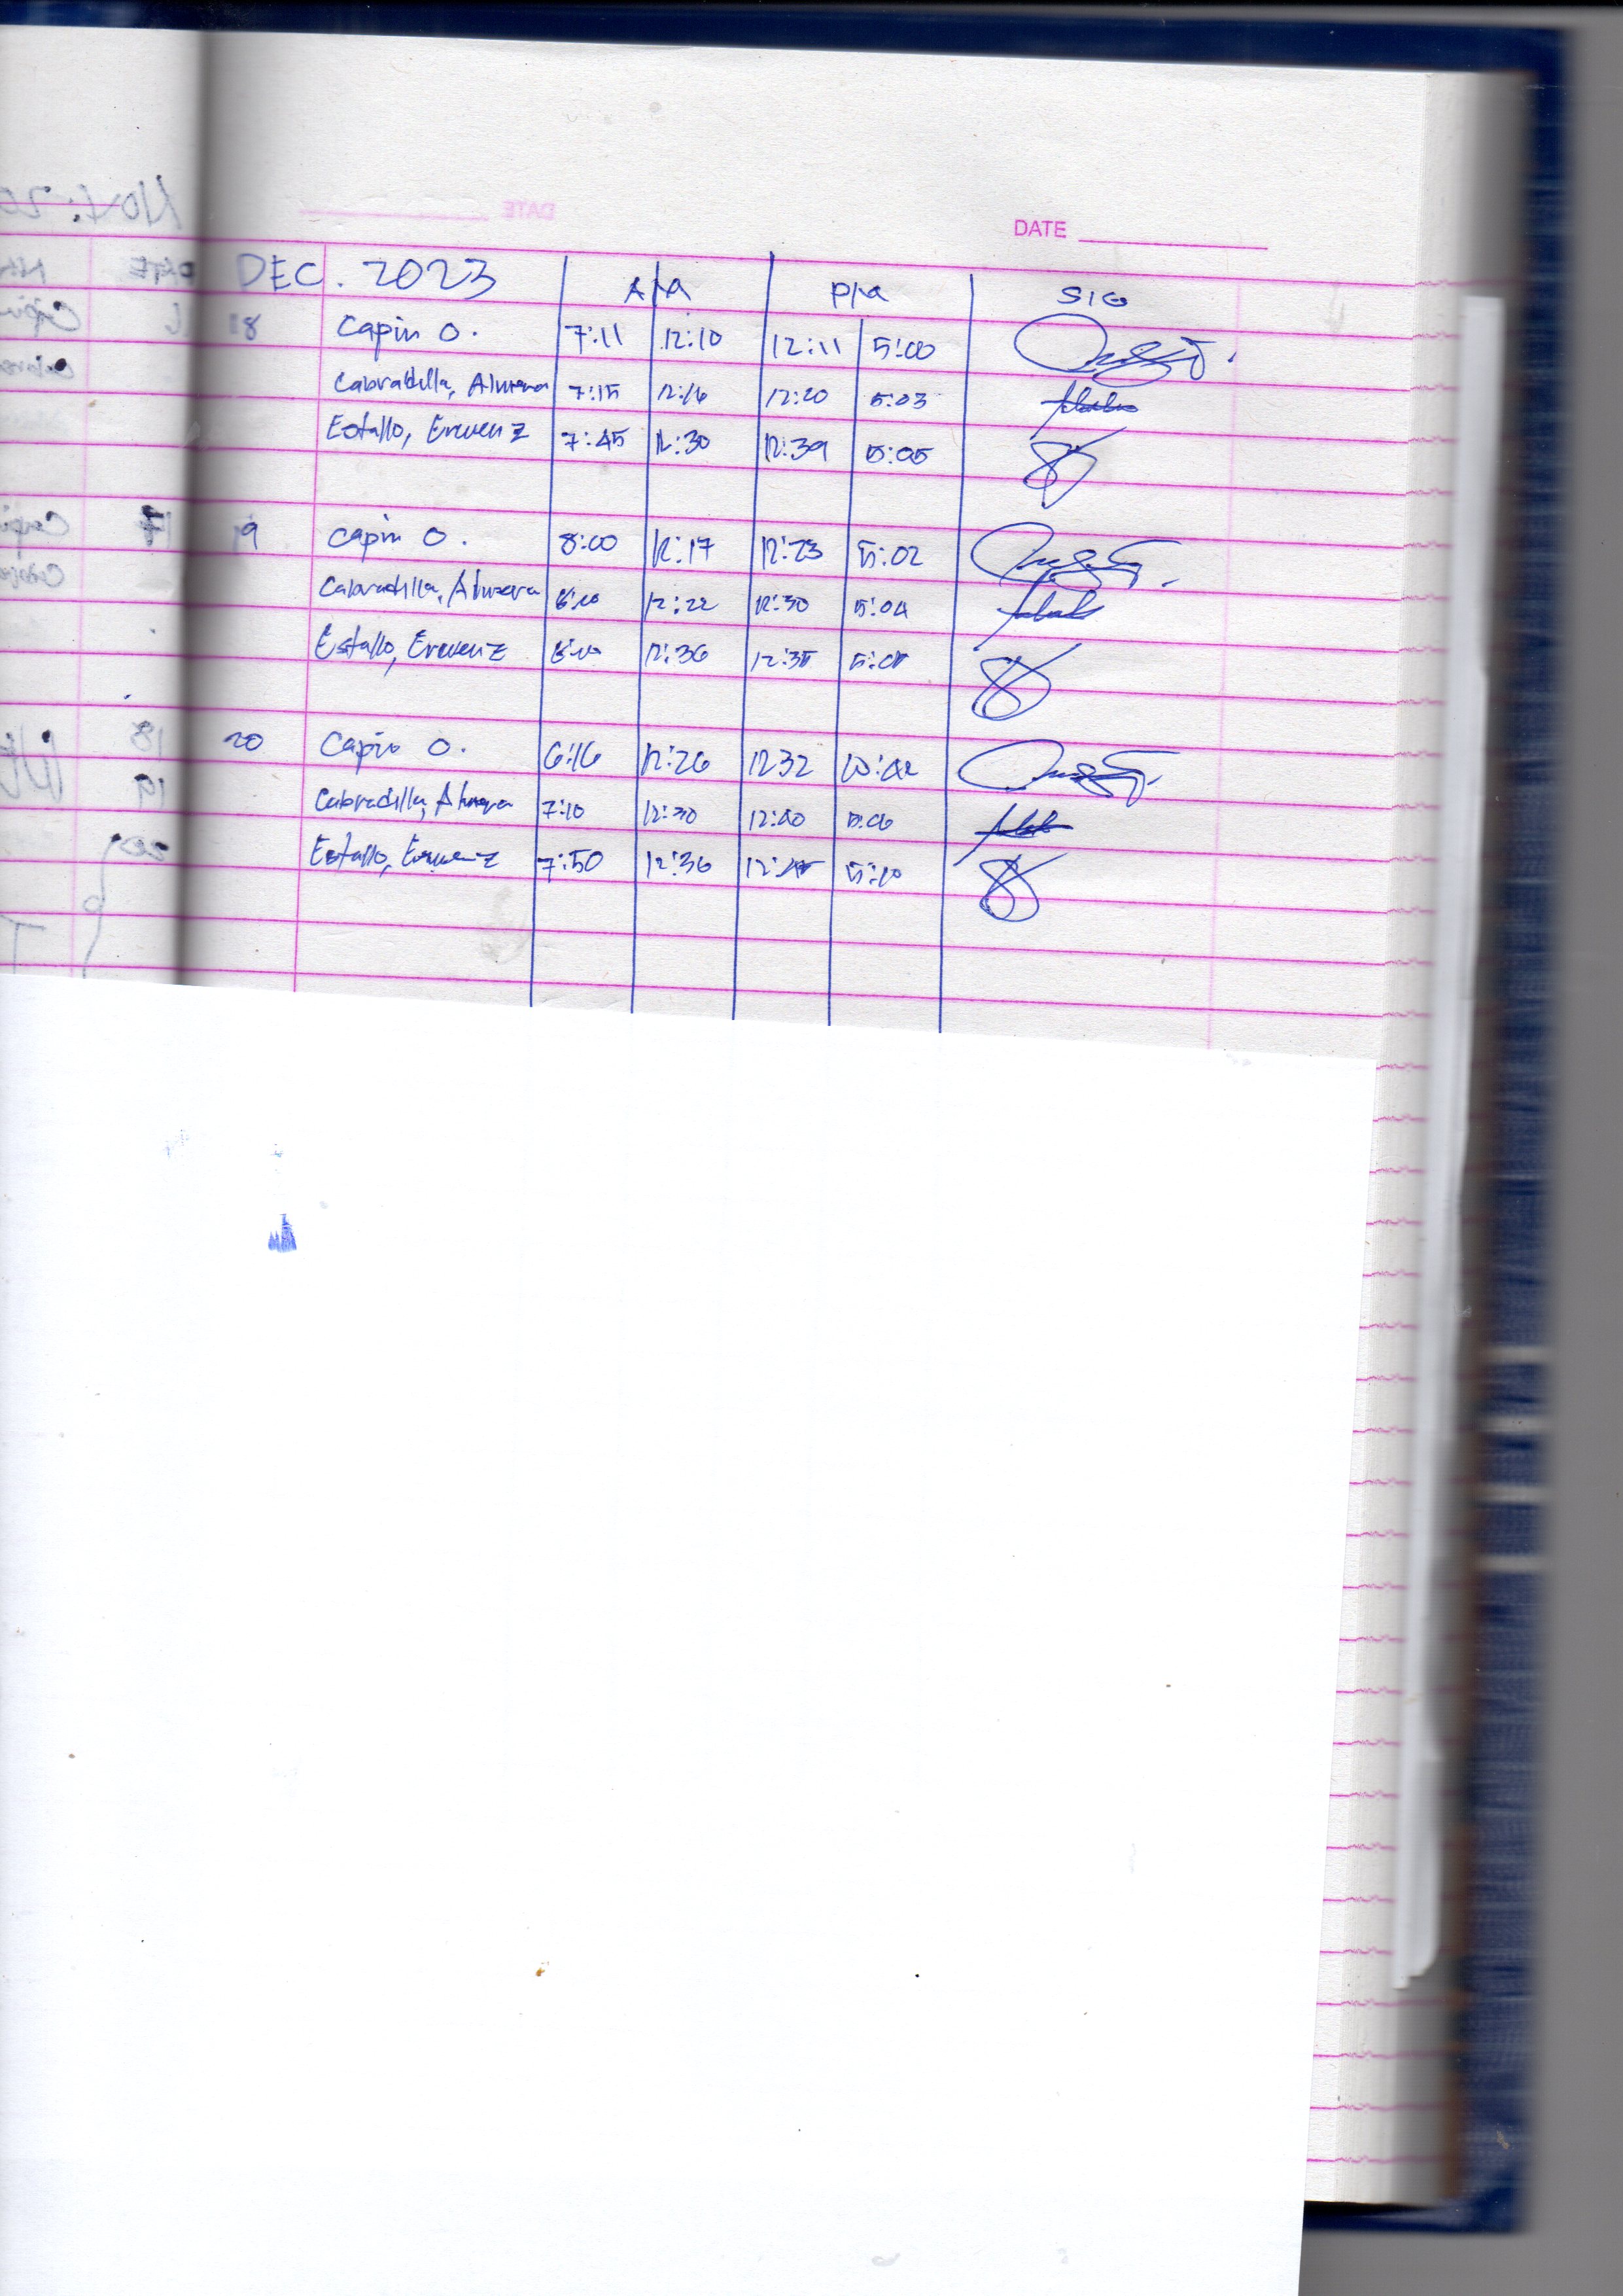 DATE
DEC. 2023 A/M P/M SIG
18 Capin O. 7:11 12:10 12:11 5:00
Cabradilla, Almera 7:15 12:16 12:20 5:03
Estallo, Erevenz 7:45 12:30 12:39 5:05
19 Capin O. 8:00 12:17 12:23 5:02
Cabradilla, Almera 12:22 12:30 5:04
Estallo, Erevenz 12:36 12:35
20 Capin O. 6:16 12:26 1232
Cabradilla, Almera 7:10 12:30 12:40 5:06
Estallo, Erevenz 7:50 12:36 12:45 5:10